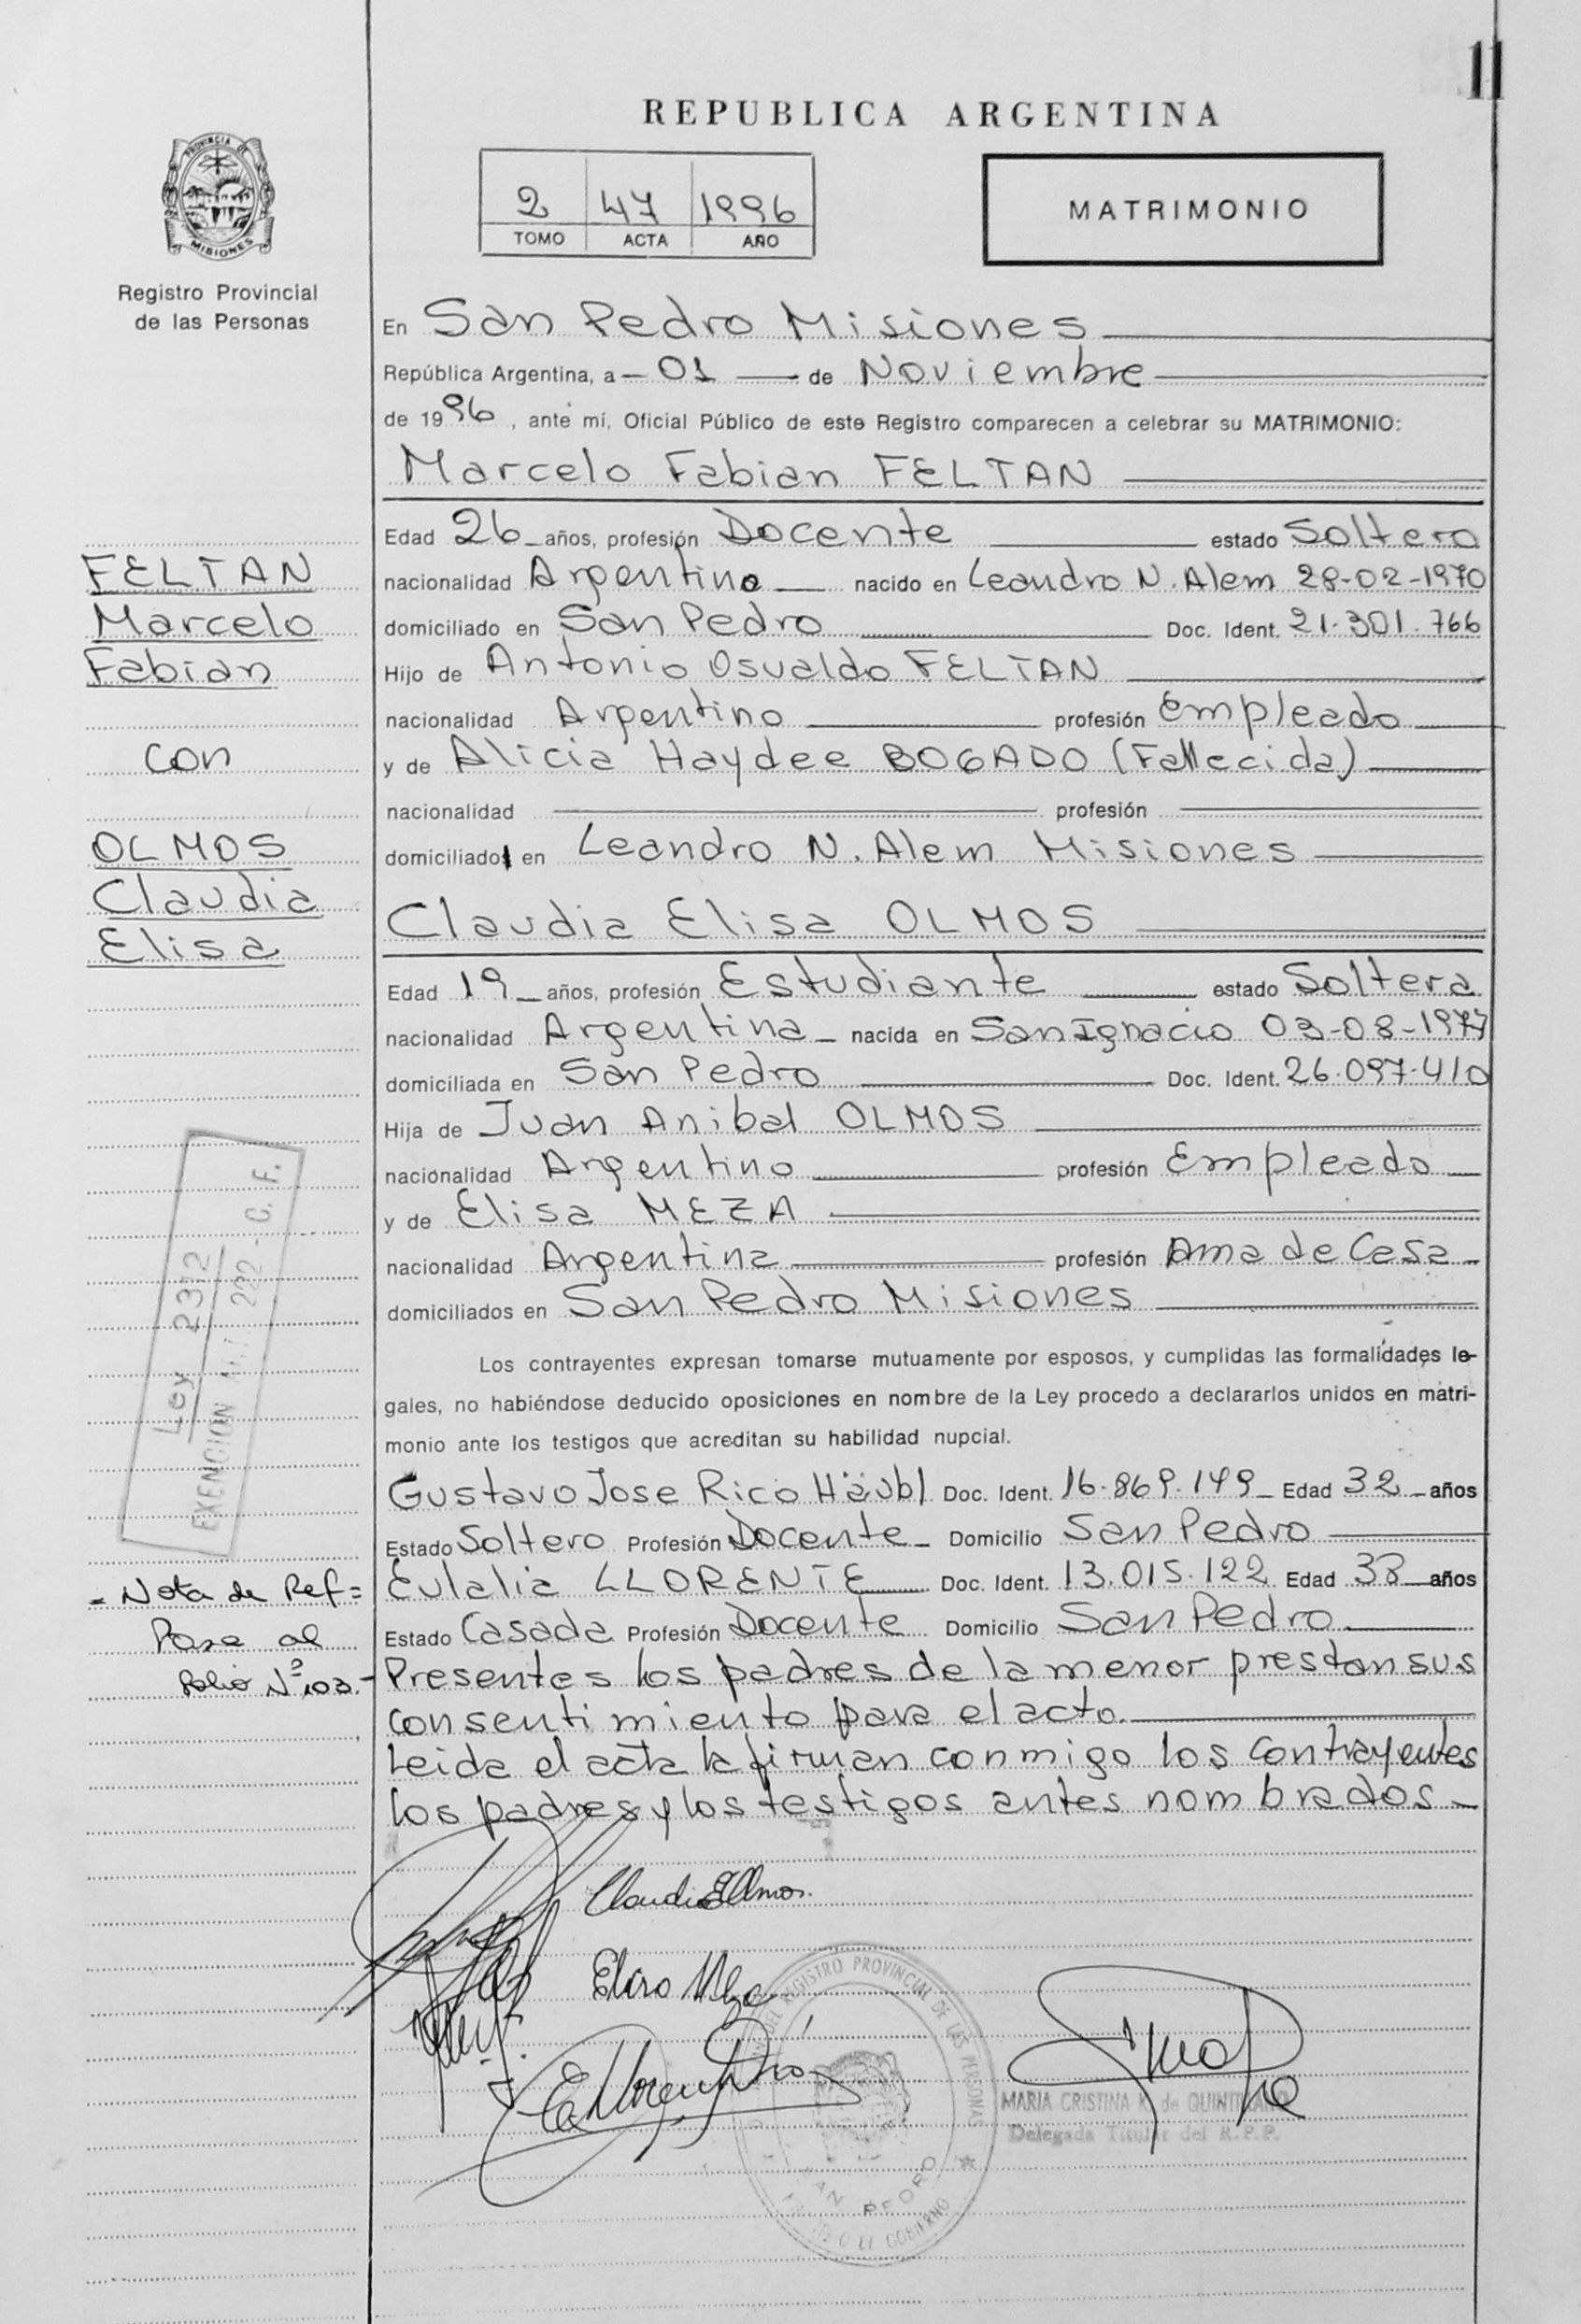 11
REPUBLICA ARGENTINA
PROVINCIA DE
MISIONES
Registro Provincial
de las Personas
2 47 1996
TOMO ACTA AÑO
MATRIMONIO
En San Pedro Misiones
República Argentina, a 01 de Noviembre
de 1996, ante mí, Oficial Público de este Registro comparecen a celebrar su MATRIMONIO:
Marcelo Fabian FELTAN
Edad 26 años, profesión Docente estado Soltero
nacionalidad Argentino nacido en Leandro N. Alem 28-02-1970
domiciliado en San Pedro Doc. Ident. 21.301.766
Hijo de Antonio Osvaldo FELTAN
nacionalidad Argentino profesión Empleado
y de Alicia Haydee BOGADO (Fallecida)
nacionalidad profesión
domiciliado en Leandro N. Alem Misiones
Claudia Elisa OLMOS
Edad 19 años, profesión Estudiante estado Soltera
nacionalidad Argentina nacida en San Ignacio 03-08-1977
domiciliada en San Pedro Doc. Ident. 26.097.410
Hija de Juan Anibal OLMOS
nacionalidad Argentino profesión Empleado
y de Elisa MEZA
nacionalidad Argentina profesión Ama de Casa
domiciliados en San Pedro Misiones
Los contrayentes expresan tomarse mutuamente por esposos, y cumplidas las formalidades le-
gales, no habiéndose deducido oposiciones en nombre de la Ley procedo a declararlos unidos en matri-
monio ante los testigos que acreditan su habilidad nupcial.
Gustavo Jose Rico Häubl Doc. Ident. 16.869.149 Edad 32 años
Estado Soltero Profesión Docente Domicilio San Pedro
Eulalia LLORENTE Doc. Ident. 13.015.122 Edad 38 años
Estado Casada Profesión Docente Domicilio San Pedro
Presentes los padres de la menor prestan sus
consentimiento para el acto.
Leida el acta la firman conmigo los contrayentes
los padres y los testigos antes nombrados
FELTAN
Marcelo
Fabian
con
OLMOS
Claudia
Elisa
Ley 2312
EXENCION Art. 222 - C. F.
- Nota de Ref =
Pasa al
folio Nº 103.-
Claudia E Olmos
Elisa Meza
DEL REGISTRO PROVINCIAL DE LAS PERSONAS
SAN PEDRO
GOBIERNO
MARIA CRISTINA de
Delegada Titular del R.P.P.